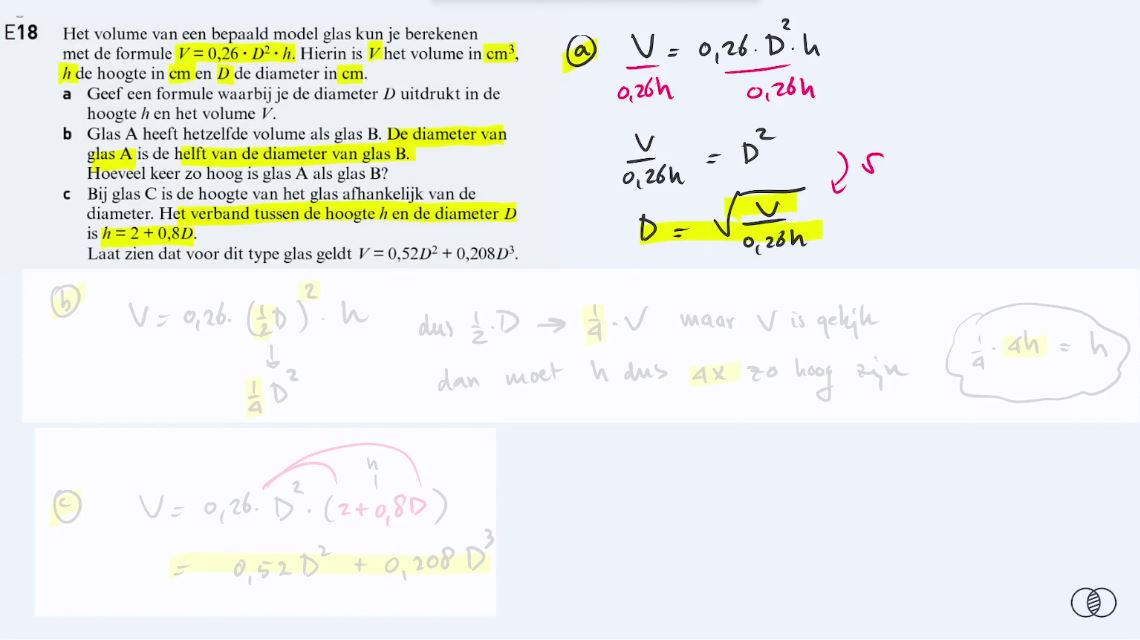 E18 Het volume van een bepaald model glas kun je berekenen
met de formule V = 0,26 · D² · h. Hierin is V het volume in cm³,
h de hoogte in cm en D de diameter in cm.
a Geef een formule waarbij je de diameter D uitdrukt in de
hoogte h en het volume V.
b Glas A heeft hetzelfde volume als glas B. De diameter van
glas A is de helft van de diameter van glas B.
Hoeveel keer zo hoog is glas A als glas B?
c Bij glas C is de hoogte van het glas afhankelijk van de
diameter. Het verband tussen de hoogte h en de diameter D
is h = 2 + 0,8D.
Laat zien dat voor dit type glas geldt V = 0,52D² + 0,208D³.
a V = 0,26 · D² · h
0,26h 0,26h
V/0,26h = D²
√
D = √(V/0,26h)
b V = 0,26 · (½D)² · h
¼D²
dus ½ · D → ¼ · V maar V is gelijk
dan moet h dus 4x zo hoog zijn
¼ · 4h = h
c h
V = 0,26 · D² · (2 + 0,8D)
= 0,52D² + 0,208D³